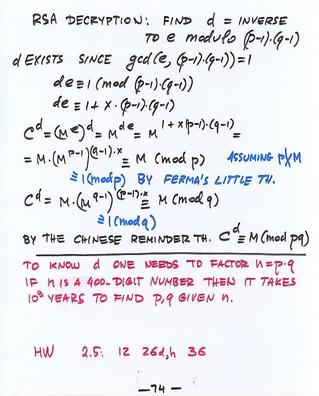 RSA DECRYPTION: FIND d = INVERSE
TO e MODULO (p-1)·(q-1)
d EXISTS SINCE gcd(e, (p-1)·(q-1))=1
de≡1 (mod (p-1)·(q-1))
de = 1 + x·(p-1)·(q-1)
C^d=(M^e)^d = M^de = M^1+x(p-1)·(q-1) =
= M·(M^p-1)^(q-1)·x ≡ M (mod p) ASSUMING p∤M
≡1(mod p) BY FERMA'S LITTLE TH.
C^d = M·(M^q-1)^(p-1)·x ≡ M (mod q)
≡1(mod q)
BY THE CHINESE REMINDER TH. C^d≡M(mod pq)
TO KNOW d ONE NEEDS TO FACTOR n=p·q
IF n IS A 400-DIGIT NUMBER THEN IT TAKES
10^9 YEARS TO FIND p,q GIVEN n.
HW 2.5: 12 26d,h 36
—74—